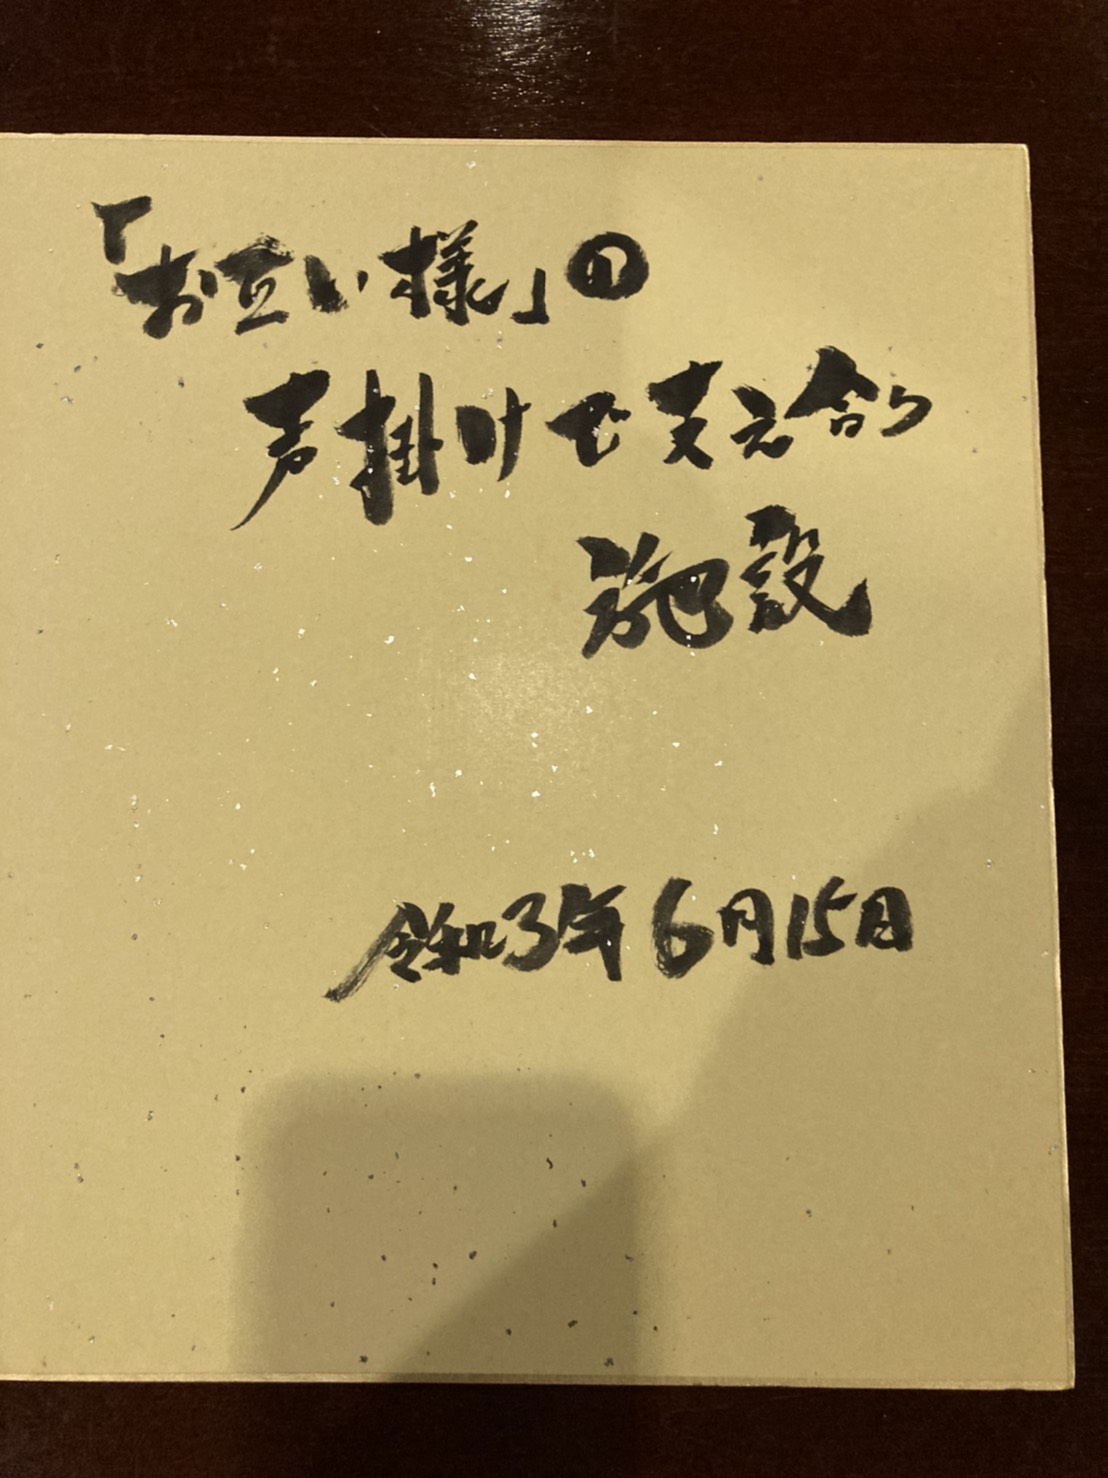 「お互い様」の
声掛けで支え合う
施設
令和3年6月15日